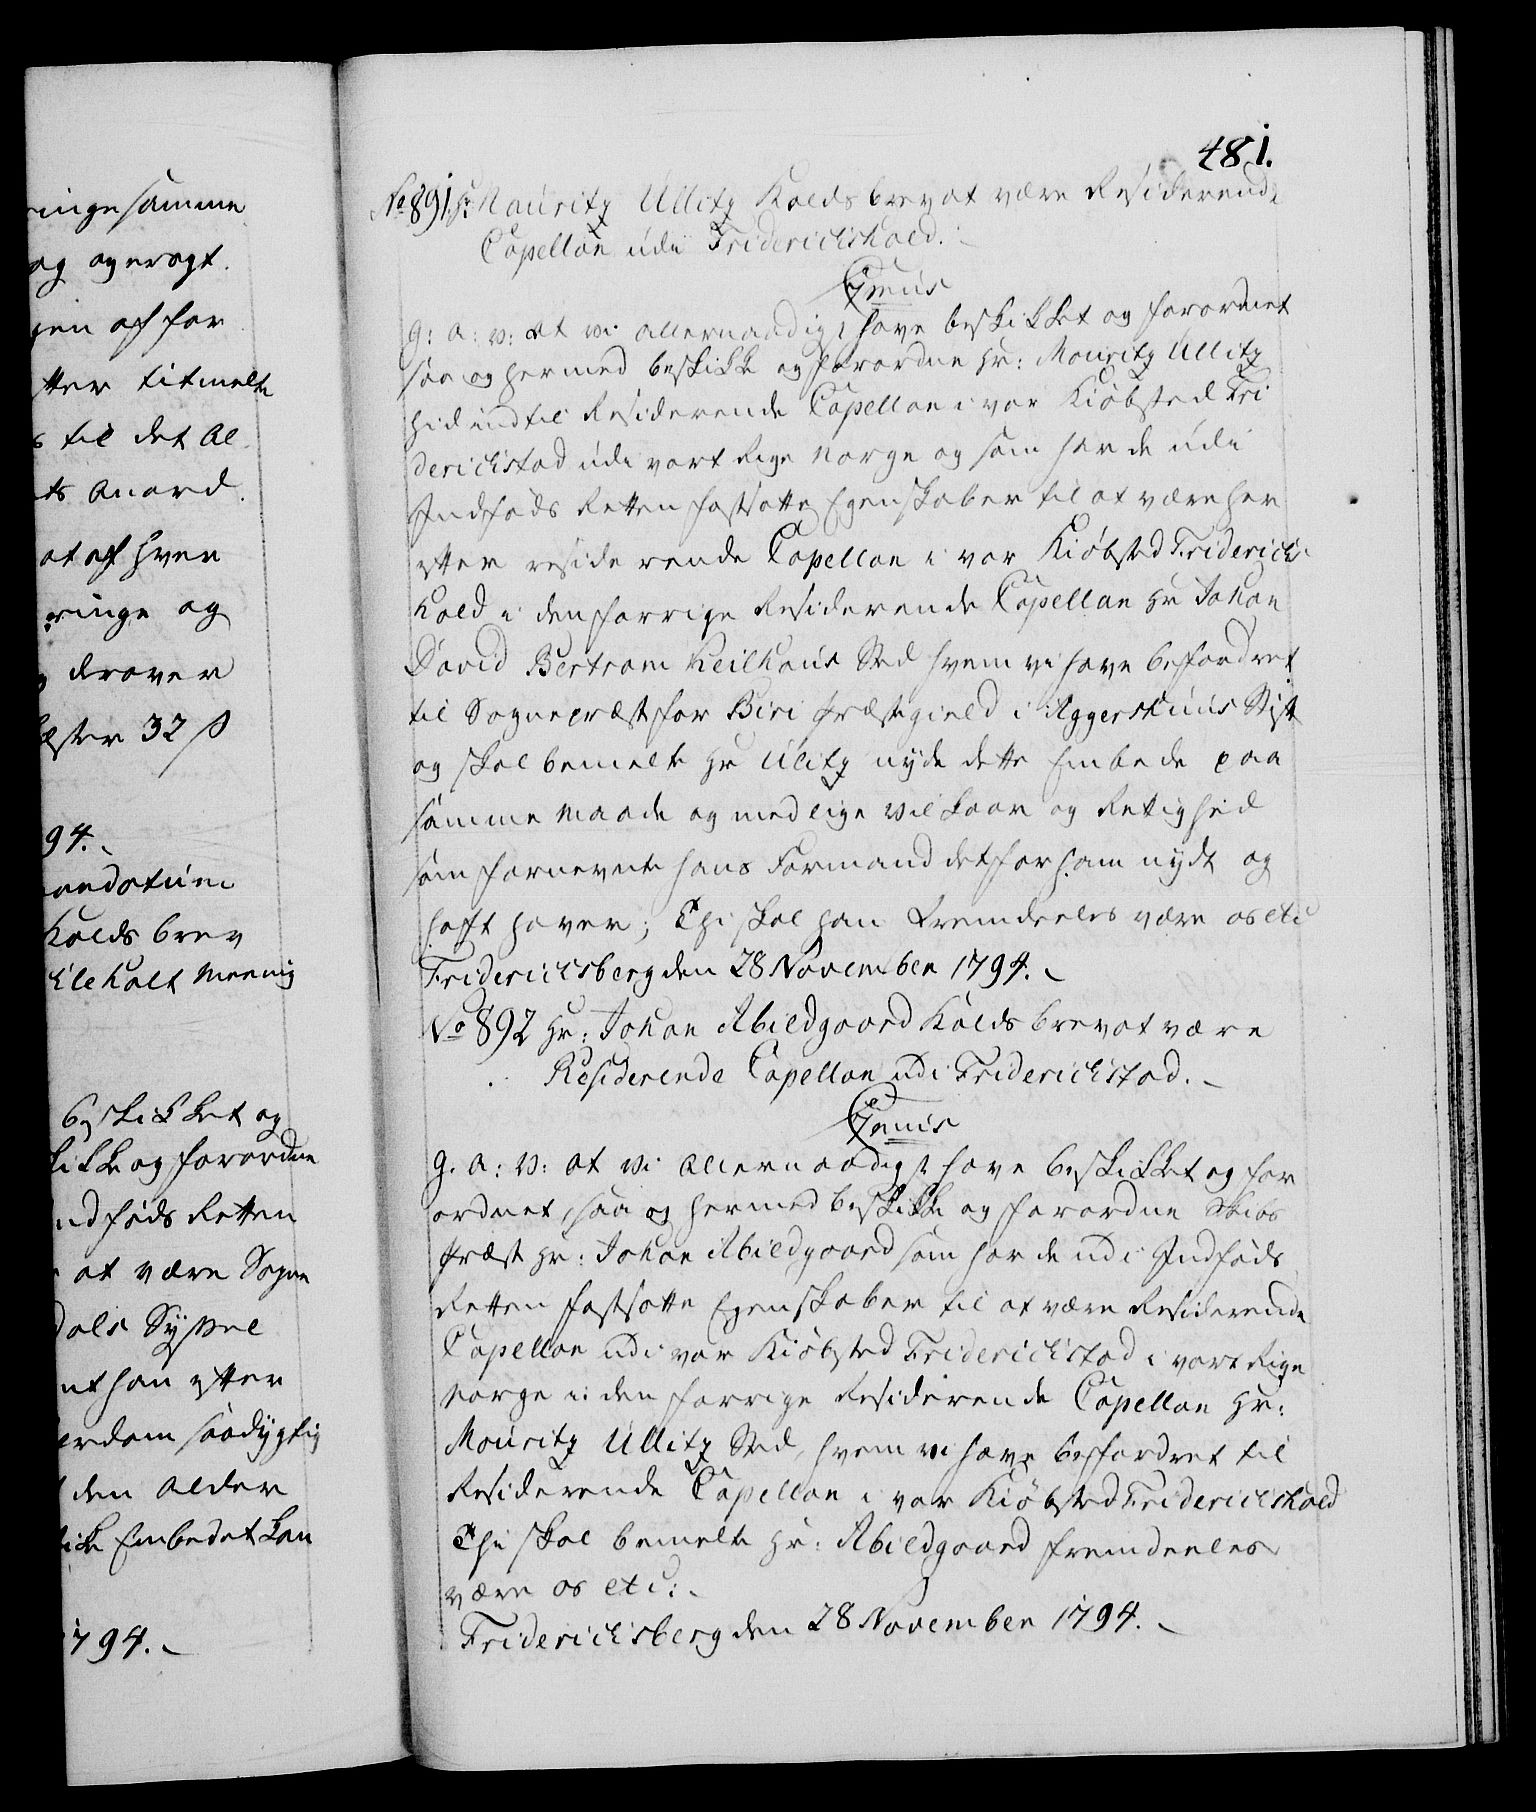 ringe samme
og agerogt.
gen af for
tter titmelte
s til det Al
ts Anord.
at af hver
ringe og
drover
ester 32 ß
94.
mandatum
Kalds brev
Meenig
beskikket og
kikke og forordne
ndføds Retten
at være Sogne
dals Syssel
nt han efter
erdom saa dygtig
den Alder
Embedet kan
1794.
481.
No 891. Hr Mauritz Ullitz Kalds brev at være Residerende
Capellan udi Friderichshald.
C7mus
G: A: V: At vi allernaadigst have beskikket og forordnet
saa og hermed beskikke og forordne Hr: Mauritz Ullitz
hid indtil Residerende Capellan i vor Kiøbsted Fri
derichstad udi vort Rige Norge og som har de udi
Indføds Retten fastsatte Egenskaber til at være her
efter residerende Capellan i vor Kiøbsted Friderichs
hald i den forrige Residerende Capellan Hr Johan
David Bertram Keilhaus Sted hvem vi have befordret
til Sognepræst for Biri Præstegield i Aggershuus Stift
og skal bemelte Hr Ulitz nyde dette Embede paa
samme Maade og med lige Vilkaar og Retighed
som fornevnte hans Formand det for ham nydt og
haft haver; Thi skal han Fremdeeles være os etc
Friderichsberg den 28 November 1794.
No 892 Hr: Johan Abildgaard Kalds brev at være
Residerende Capellan udi Friderichstad.
C7mus
G. A: V: At Vi Allernaadigst have beskikket og for
ordnet, saa og hermed beskikke og forordne Skibs
Præst Hr: Johan Abildgaard som har de udi Indføds
Retten fastsatte Egenskaber til at være Residerende
Capellan udi vor Kiøbsted Friderichstad i vort Rige
Norge i den forrige Residerende Capellan Hr:
Mauritz Ullitz Sted, hvem vi have befordret til
Residerende Capellan i vor Kiøbsted Friderichshald
Thi skal bemelte Hr: Abildgaard fremdeeles
være os etc:
Friderichsberg den 28 November 1794.